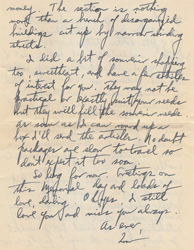 money. The section is nothing
more than a bunch of disorganized
buildings cut up by narrow winding
streets.
I did a bit of souvenir shopping
too, sweetheart, and have a few articles
of interest for you. They may not be
practical or exactly suit your needs
but they will fill the souvenir needs
as soon as I can round up a
box I'll send the articles. No doubt
packages are slow to travel so
don't expect it too soon.
So long for now. Greetings on
this day and loads of
love, darling. I still
love you and miss you always.
As ever